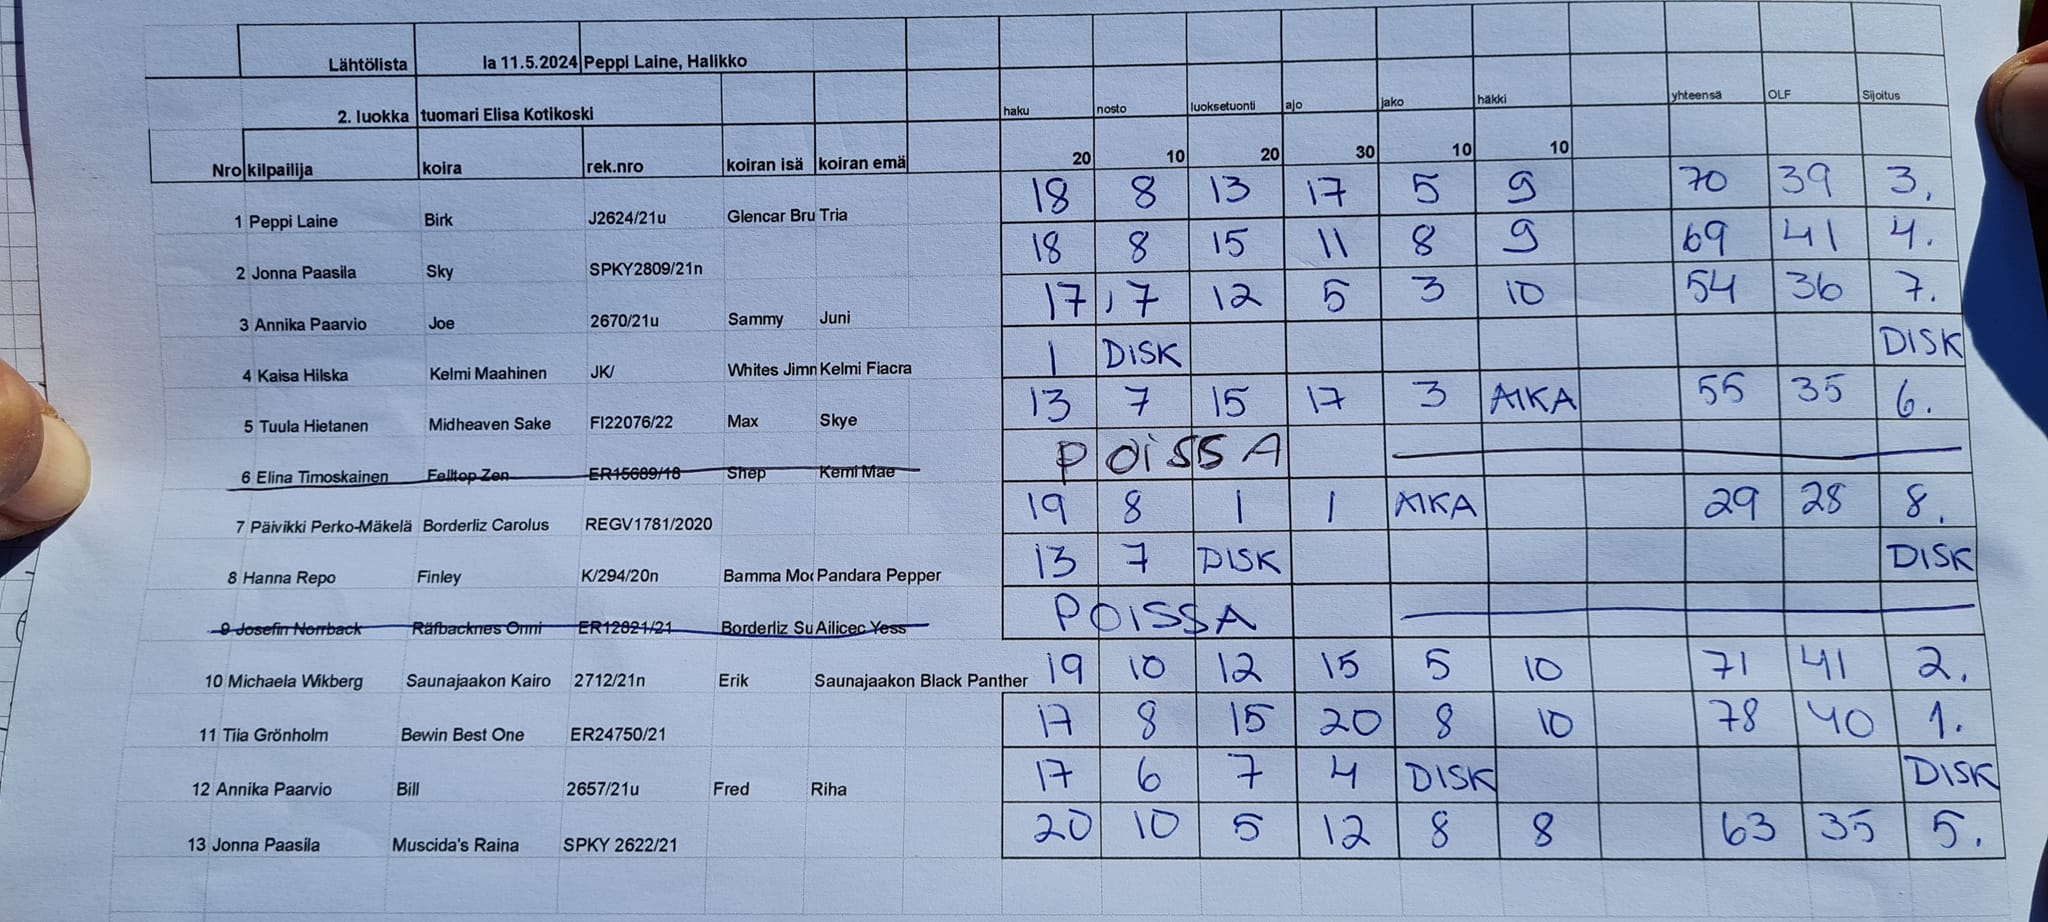 Lähtölista la 11.5.2024 Peppi Laine, Halikko
2. luokka tuomari Elisa Kotikoski haku nosto luoksetuonti ajo jako häkki yhteensä OLF Sijoitus
Nro kilpailija koira rek.nro koiran isä koiran emä 20 10 20 30 10 10
1 Peppi Laine Birk J2624/21u Glencar Bru Tria 18 8 13 17 5 9 70 39 3.
2 Jonna Paasila Sky SPKY2809/21n 18 8 15 11 8 9 69 41 4.
3 Annika Paarvio Joe 2670/21u Sammy Juni 17 7 12 5 3 10 54 36 7.
4 Kaisa Hilska Kelmi Maahinen JK/ Whites Jimn Kelmi Fiacra 1 DISK DISK
5 Tuula Hietanen Midheaven Sake FI22076/22 Max Skye 13 7 15 17 3 AIKA 55 35 6.
6 Elina Timoskainen Felltop Zen ER15689/18 Shep Kemi Mae POISSA
7 Päivikki Perko-Mäkelä Borderliz Carolus REGV1781/2020 19 8 1 1 AIKA 29 28 8.
8 Hanna Repo Finley K/294/20n Bamma Moc Pandara Pepper 13 7 DISK DISK
9 Josefin Norrback Räfbacknes Onni ER12821/21 Borderliz Su Ailicec Yess POISSA
10 Michaela Wikberg Saunajaakon Kairo 2712/21n Erik Saunajaakon Black Panther 19 10 12 15 5 10 71 41 2.
11 Tiia Grönholm Bewin Best One ER24750/21 17 8 15 20 8 10 78 40 1.
12 Annika Paarvio Bill 2657/21u Fred Riha 17 6 7 4 DISK DISK
13 Jonna Paasila Muscida's Raina SPKY 2622/21 20 10 5 12 8 8 63 35 5.